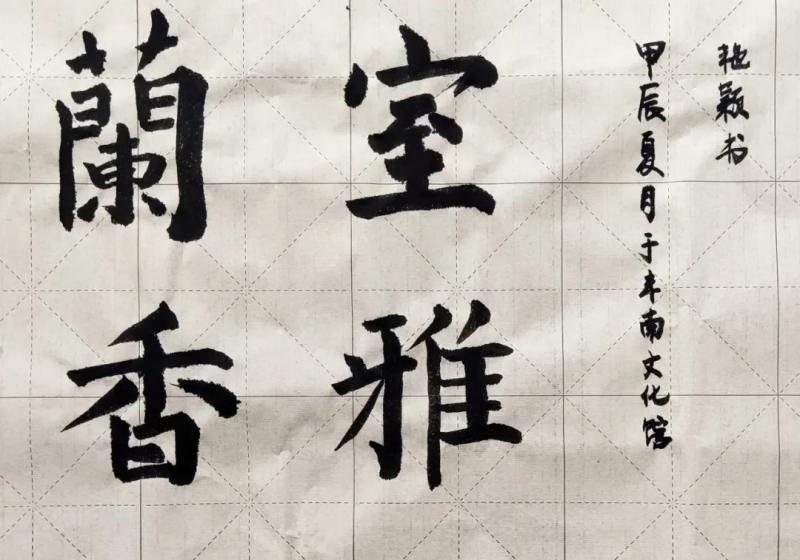 室雅
蘭香
甲辰夏月于丰南文化馆
艳颖书